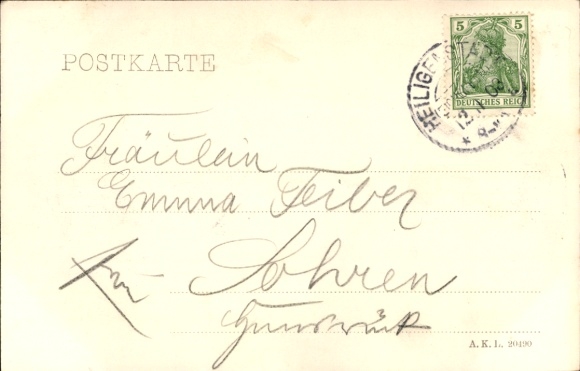 POSTKARTE
5 5
DEUTSCHES REICH
HEILIGENSTADT
Fräulein
Emma Feiber
in Sohren
Hunsrück
A.K.L. 20490